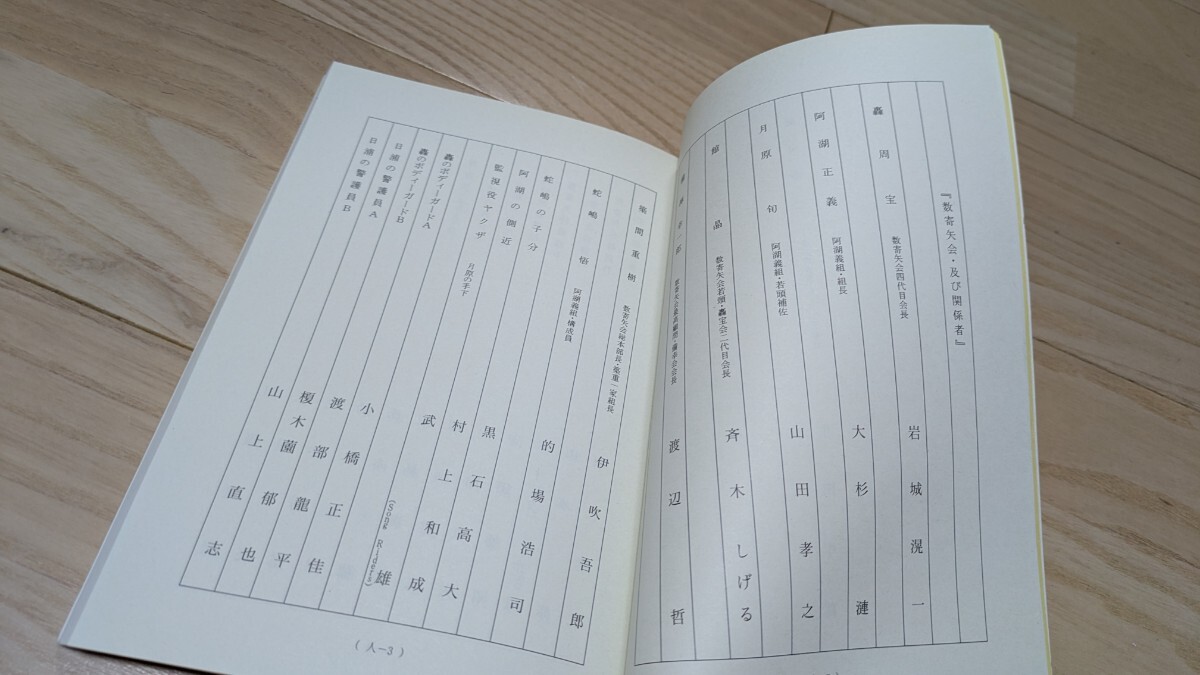 『数寄矢会・及び関係者』
轟周宝 数寄矢会四代目会長 岩城滉一
阿湖正義 阿湖義組・組長 大杉漣
月原旬 阿湖義組・若頭補佐 山田孝之
晶 数寄矢会若頭・轟宝会二代目会長 斉木しげる
渡辺哲
間重樹 数寄矢会総本部長・ 重一家組長 伊吹吾郎
蛇嶋悟 阿湖義組・構成員 的場浩司
蛇嶋の子分 黒石高大
阿湖の側近 村上和成
監視役ヤクザ 月原の手下 武雄 (Song Riders)
轟のボディーガードA 小橋正佳
轟のボディーガードB 渡部龍平
日浦の警護員A 榎木薗郁也
日浦の警護員B 山上直志
(人-3)